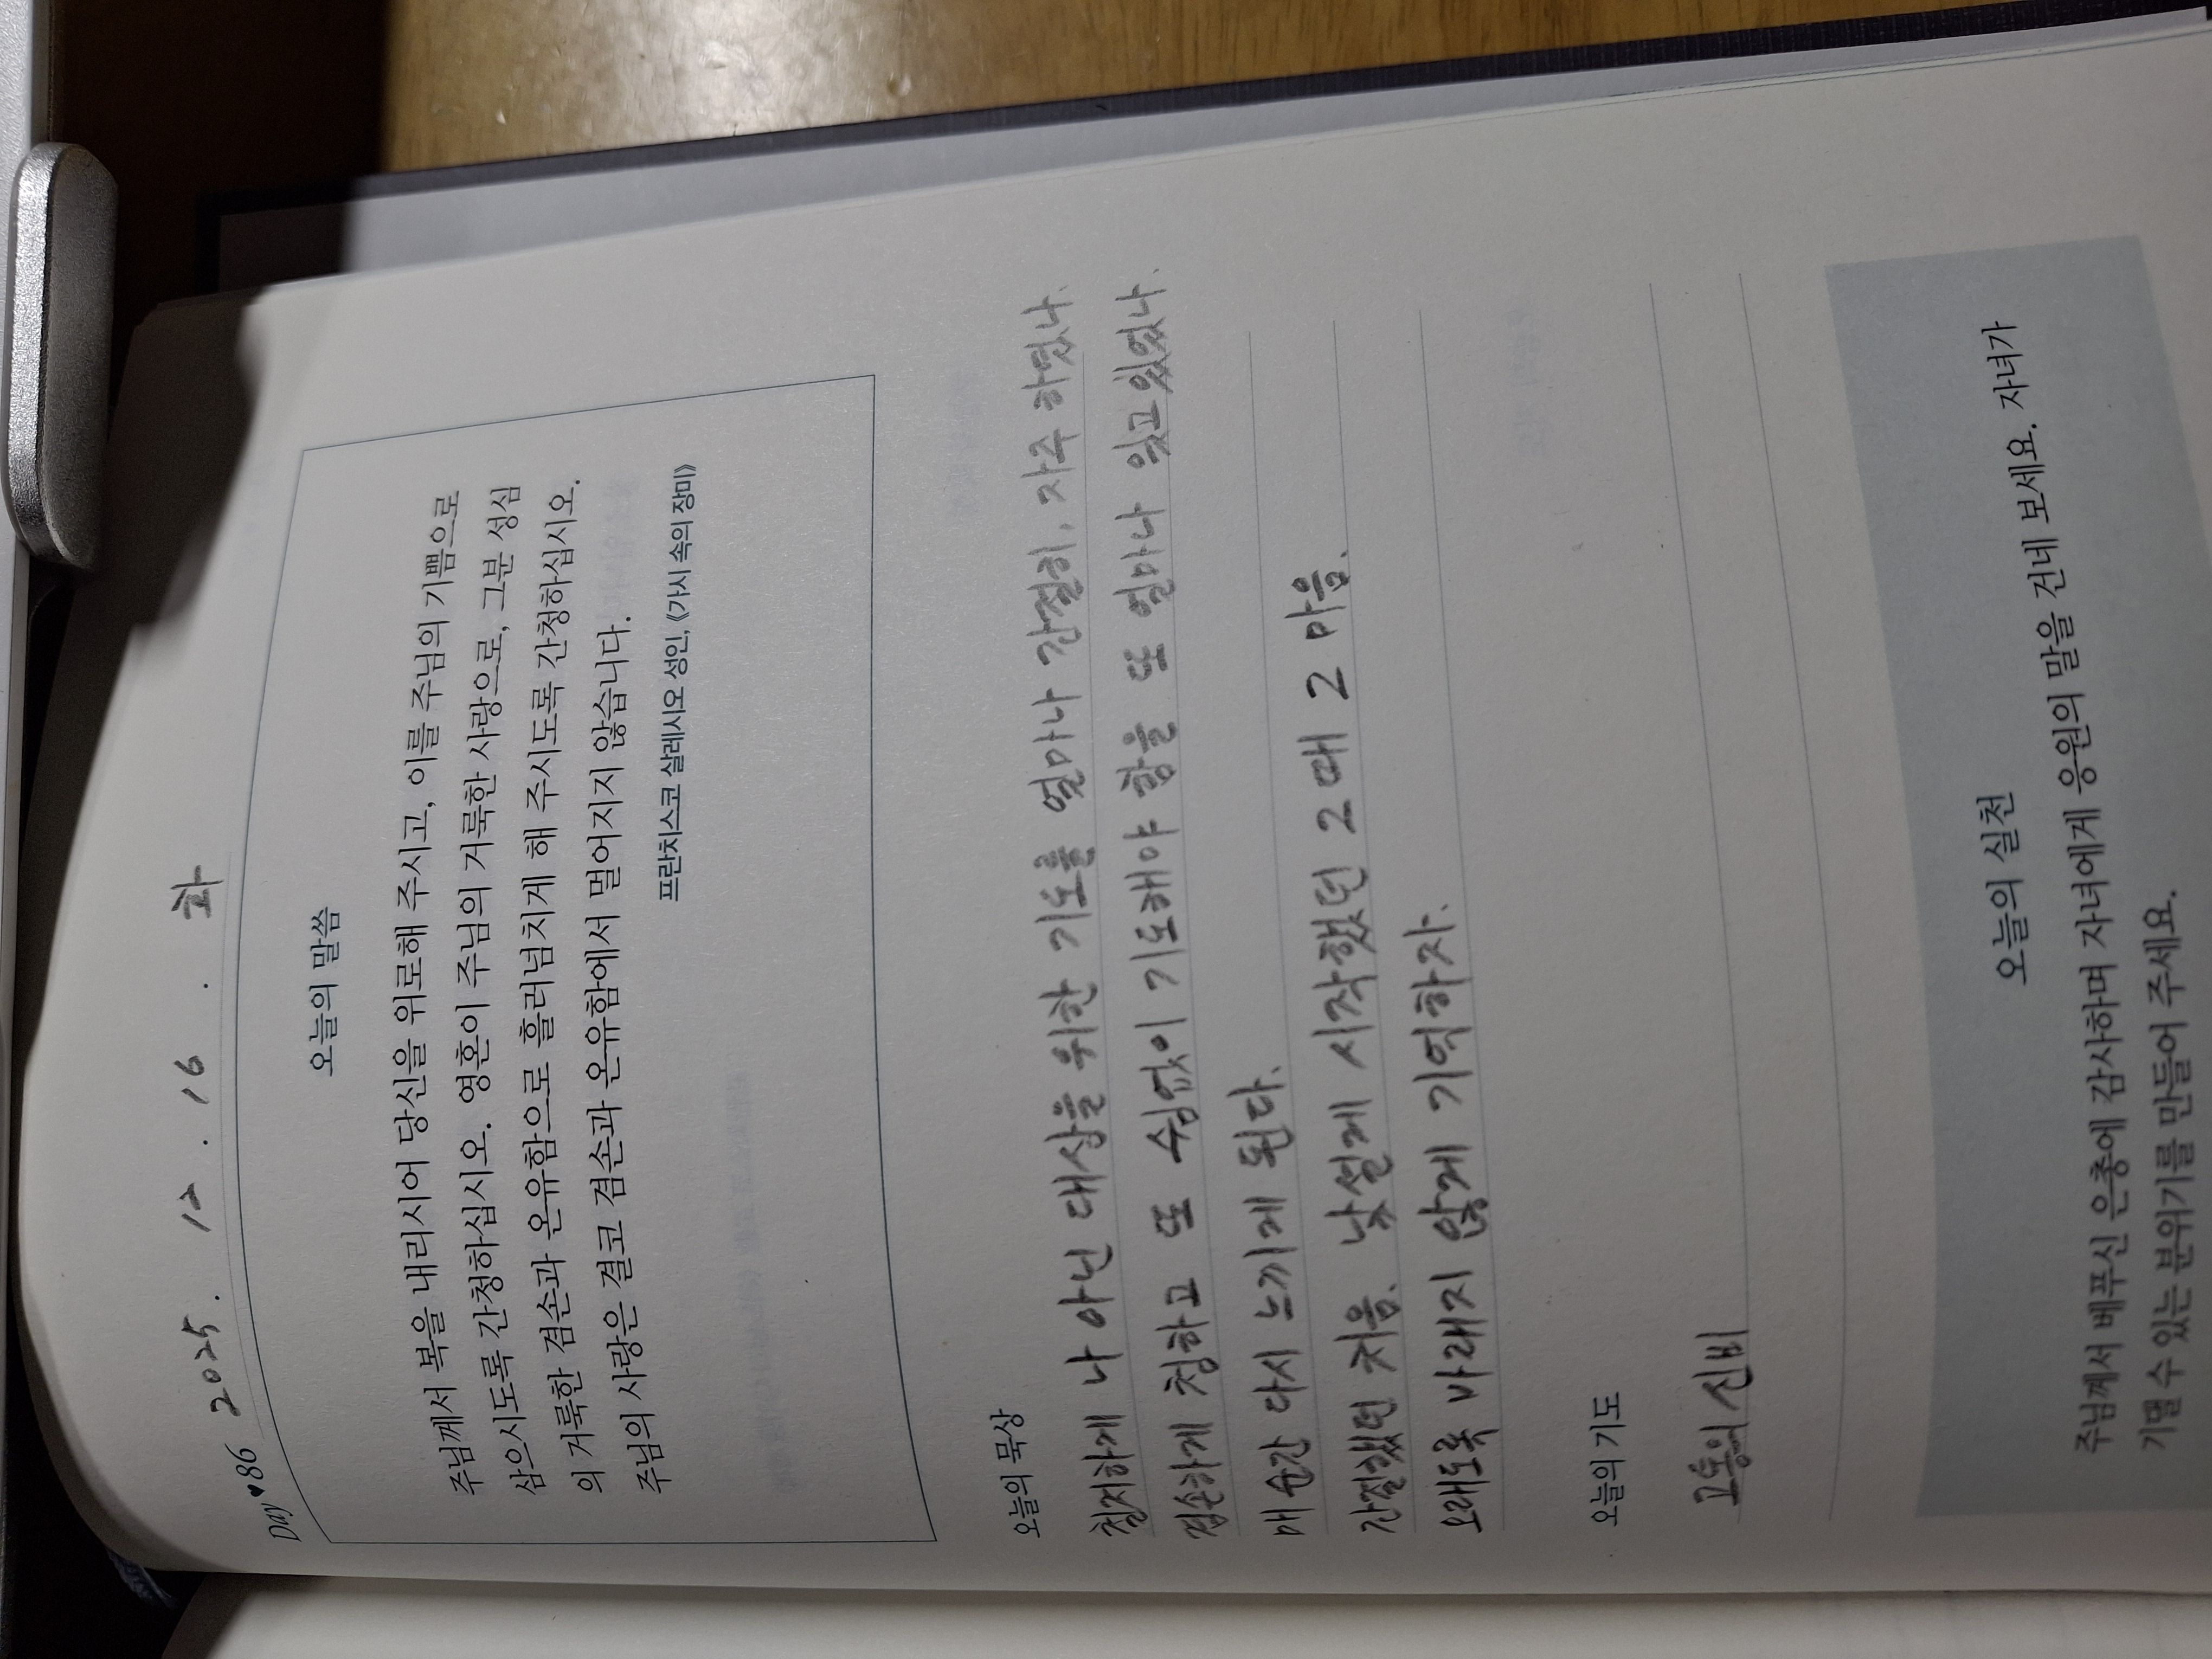 Day♥86 2025. 12. 16. 화
오늘의 말씀
주님께서 복을 내리시어 당신을 위로해 주시고, 이를 주님의 기쁨으로
삼으시도록 간청하십시오. 영혼이 주님의 거룩한 사랑으로, 그분 성심
의 거룩한 겸손과 온유함으로 흘러넘치게 해 주시도록 간청하십시오.
주님의 사랑은 결코 겸손과 온유함에서 멀어지지 않습니다.
프란치스코 살레시오 성인, 《가시 속의 장미》
오늘의 묵상
철저하게 나 아닌 대상을 위한 기도를 얼마나 간절히, 자주 하였나.
겸손하게 청하고 또 쉼없이 기도해야 함을 또 얼마나 잊고 있었나.
매 순간 다시 느끼게 된다.
간절했던 처음. 낯설게 시작했던 그 때 그 마음.
오래도록 바래지 않게 기억하자.
오늘의 기도
고통의 신비
오늘의 실천
주님께서 베푸신 은총에 감사하며 자녀에게 응원의 말을 건네 보세요. 자녀가
기댈 수 있는 분위기를 만들어 주세요.